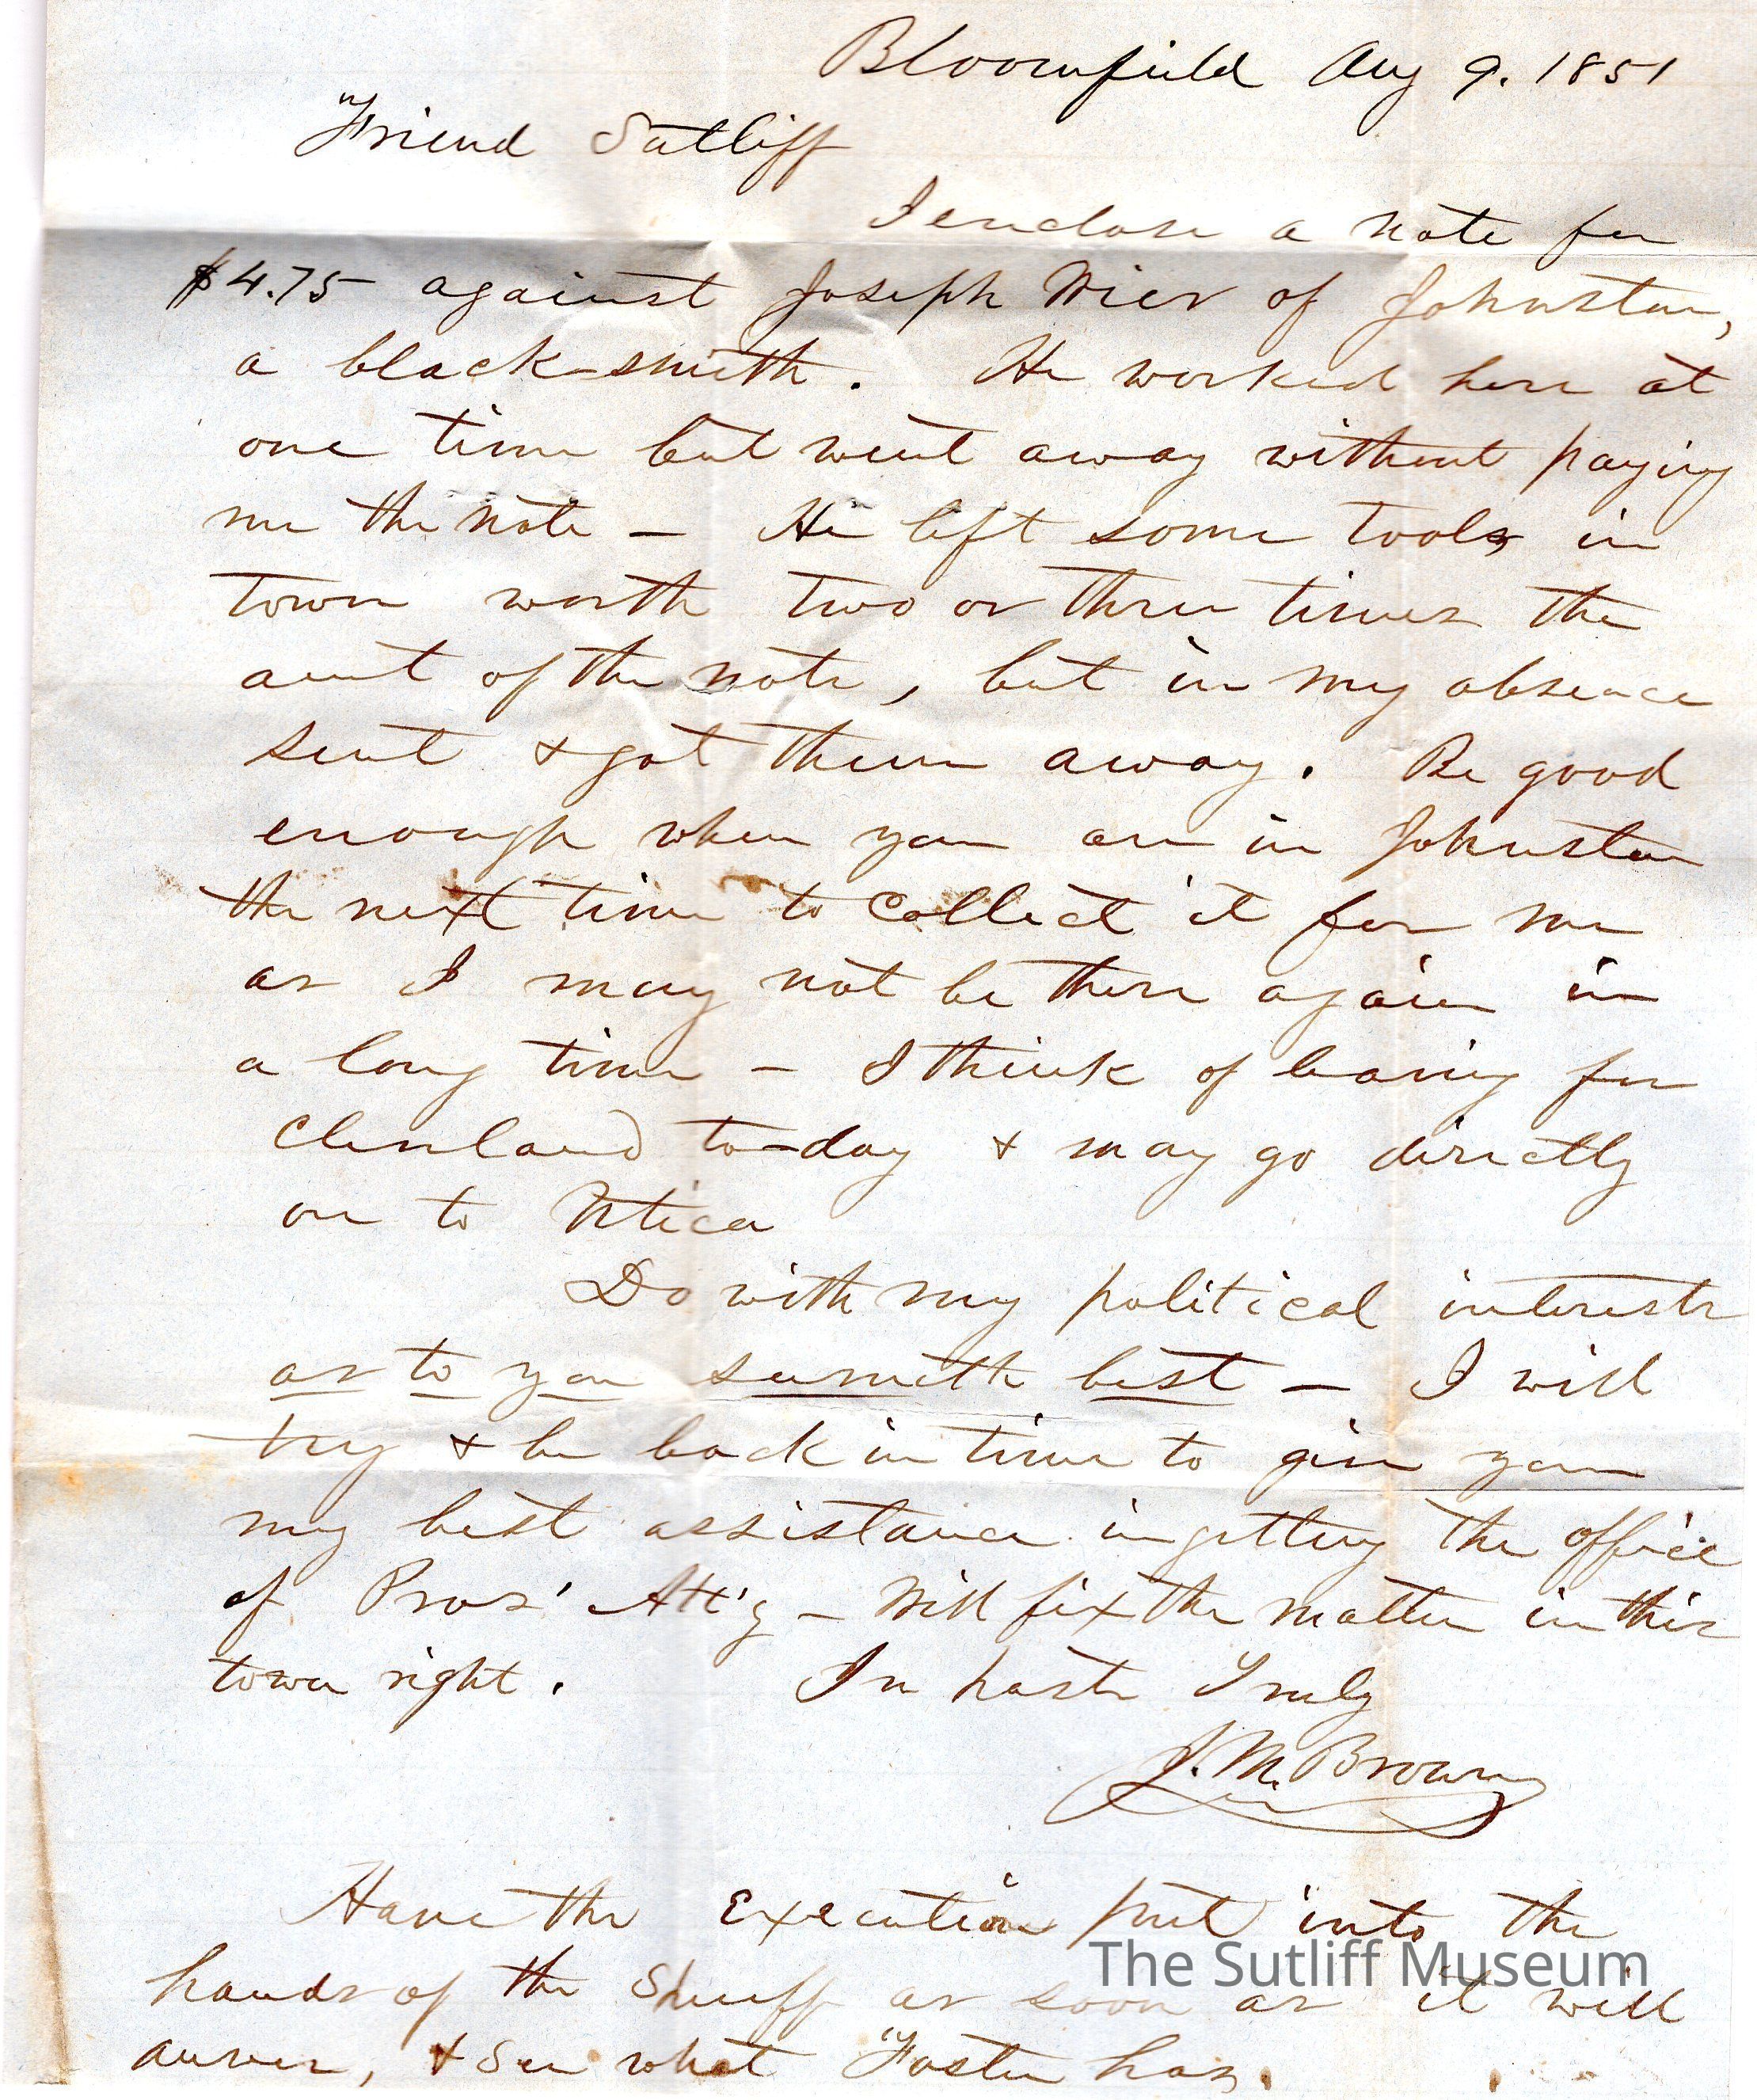 Bloomfield Aug 9. 1851
Friend Sutliff
I enclose a note for
$4.75 against Joseph Wier of Johnston,
a black-smith. He worked here at
one time but went away without paying
me the note – He left some tools in
town worth two or three times the
amt of the note, but in my absence
sent & got them away. Be good
enough when you are in Johnston
the next time to collect it for me
as I may not be there again in
a long time – I think of leaving for
Cleveland to-day & may go directly
on to Utica
Do with my political interests
as to you seemeth best – I will
try & be back in time to give you
my best assistance in getting the office
of Pros' Att'y – Will fix the matter in this
town right. In haste Truly
J. M. Brown
Have the Execution put into the
hands of the Sheriff as soon as it will
answer, & see what Foster has.
The Sutliff Museum